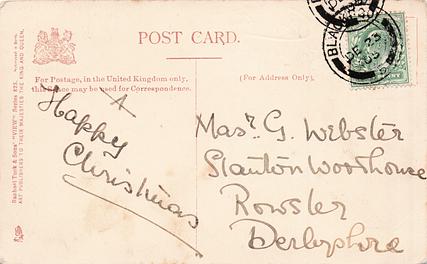 POST CARD.
For Postage, in the United Kingdom only,
this Space may be used for Correspondence.
(For Address Only).
A
Happy
Christmas
Masr. G. Webster
Stanton Woodhouse
Rowsler
Derbyshire
Raphael Tuck & Sons' "VIEW" Series 822.
ART PUBLISHERS TO THEIR MAJESTIES THE KING AND QUEEN.